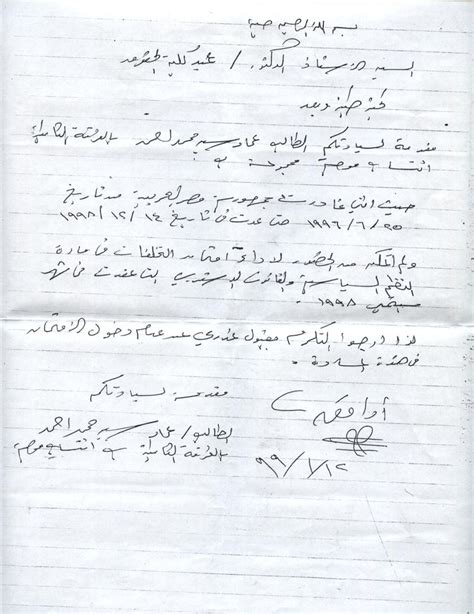 بسم الله الرحمن الرحيم
السيد الاستاذ الدكتور / عميد كلية الحقوق
تحية طيبة وبعد
مقدمة لسيادتكم الطالب عماد سيد محمد احمد بالفرقة الثانية
انتساب موجه مجموعة ب
حيث انني غادرت جمهورية مصر العربية من تاريخ
٢٥/٦/١٩٩٦ حتى عدت في تاريخ ١٤/١٢/١٩٩٨
ولم اتمكن من الحضور لاداء امتحان التخلفات في مادة
النظم السياسية والقانون الدستوري التي عقدت في شهر
سبتمبر ١٩٩٨
لذا ارجوا التكرم بقبول عذري عن عدم دخول الامتحان
في هذة المادة .
مقدمة لسيادتكم
الطالب / عماد سيد محمد احمد
بالفرقة الثانية انتساب موجه
أوافق
١٢/١/٩٩